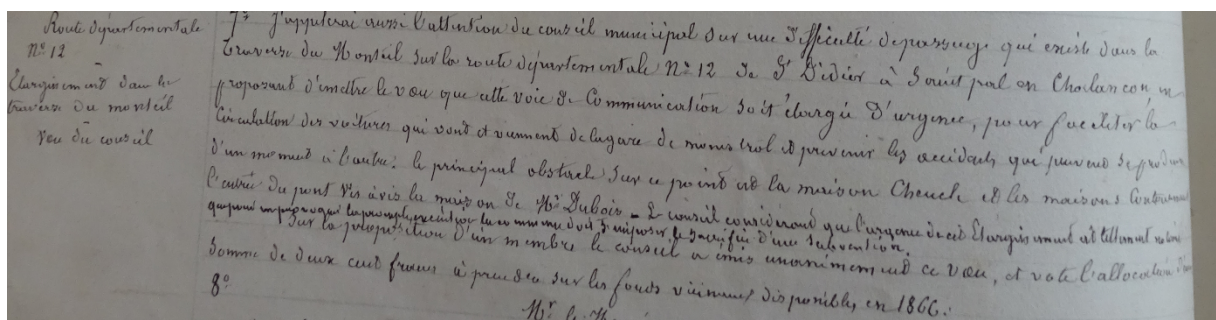 Route départementale
N° 12
Elargissement dans la
traverse du monteil
Vœu du conseil
7° J'appelerai aussi l'attention du conseil municipal sur une difficulté de passage qui existe dans la
traverse du Monteil sur la route départementale N° 12 de St Didier à Saint pal en Chalancon, en
proposant d'émettre le vœu que cette voie de Communication soit élargie d'urgence, pour faciliter la
Circulation des voitures qui vont et viennent de la gare de monistrol et prévenir les accidents qui peuvent se produire
d'un moment à l'autre. le principal obstacle sur ce point est la maison et les maisons
l'entrée du pont vis à vis la maison de Mr Dubois - Le conseil considérant que l'urgence de cet Elargissement est tellement
que pour en provoquer la prompte exécution la commune doit s'imposer le sacrifice d'une subvention.
Sur la proposition d'un membre le conseil a émis unanimement ce vœu, et vote l'allocation d'une
somme de deux cent francs à prendre sur les fonds vicinaux disponibles en 1866.
8°
Mr le